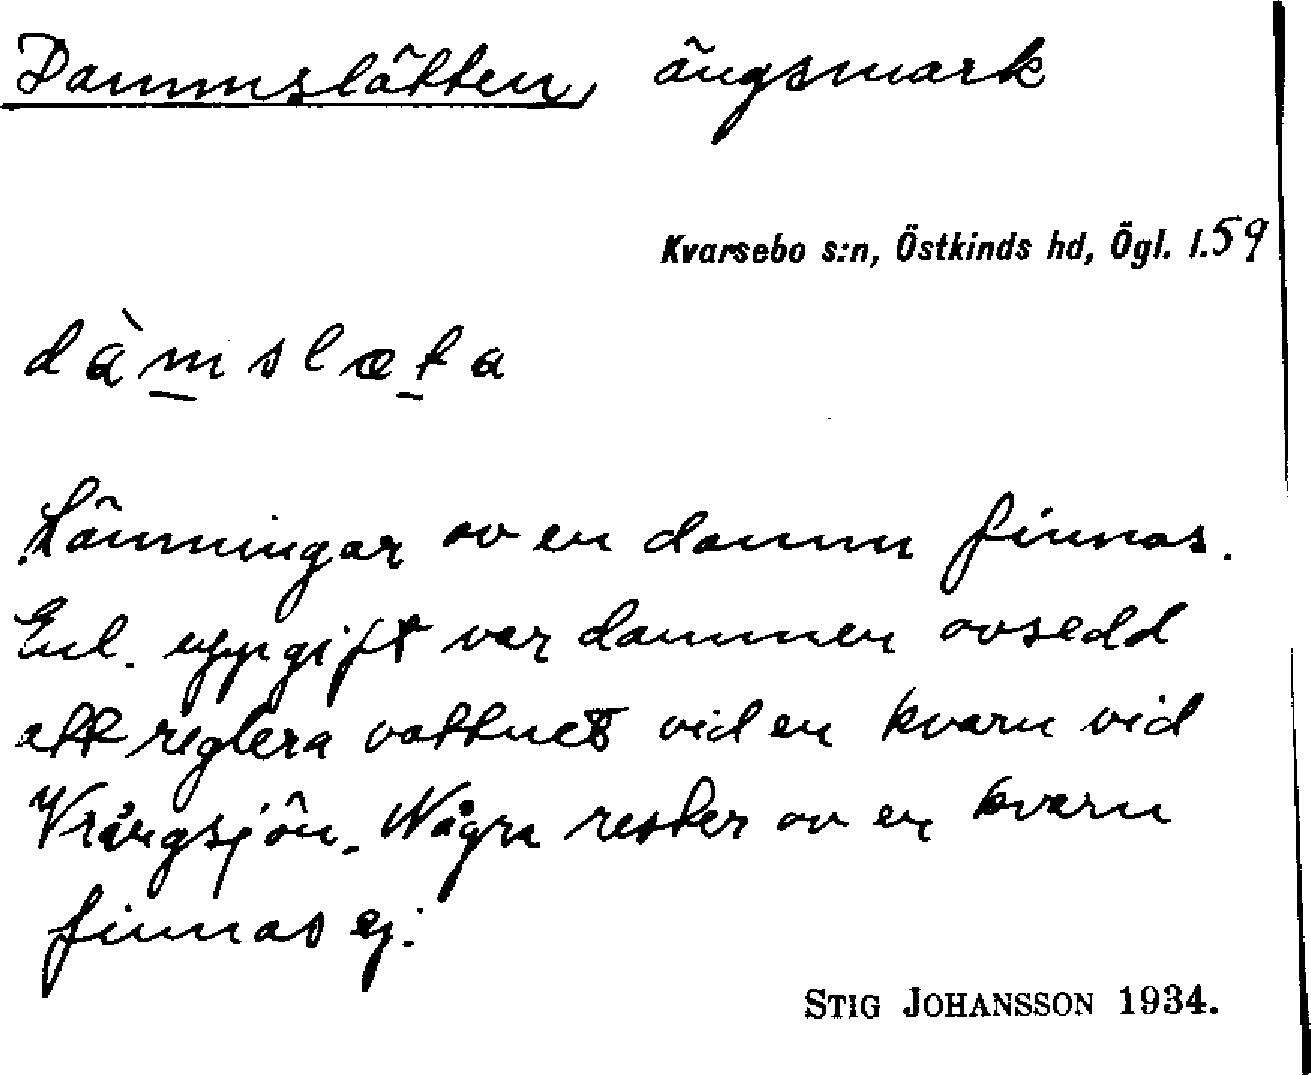 Dammslätten, ängsmark
Kvarsebo s:n, Östkinds hd, Ögl. l. 59
dàmslæta
Lämningar av en damm finnas.
Enl. uppgift var dammen avsedd
att reglera vattnet vid en kvarn vid
Vrångsjön. Några rester av en kvarn
finnas ej.
STIG JOHANSSON 1934.